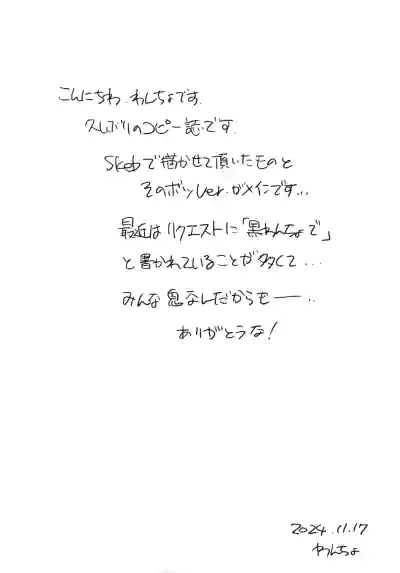 こんにちわ.わんちょです.
久しぶりのコピー誌です.
Skebで描かせて頂いたものと
そのボツver.がメインです...
最近はリクエストに「黒わんちょで」
と書かれていることが多くて...
みんな鬼なんだからもー..
ありがとうな!
2024.11.17
わんちょ